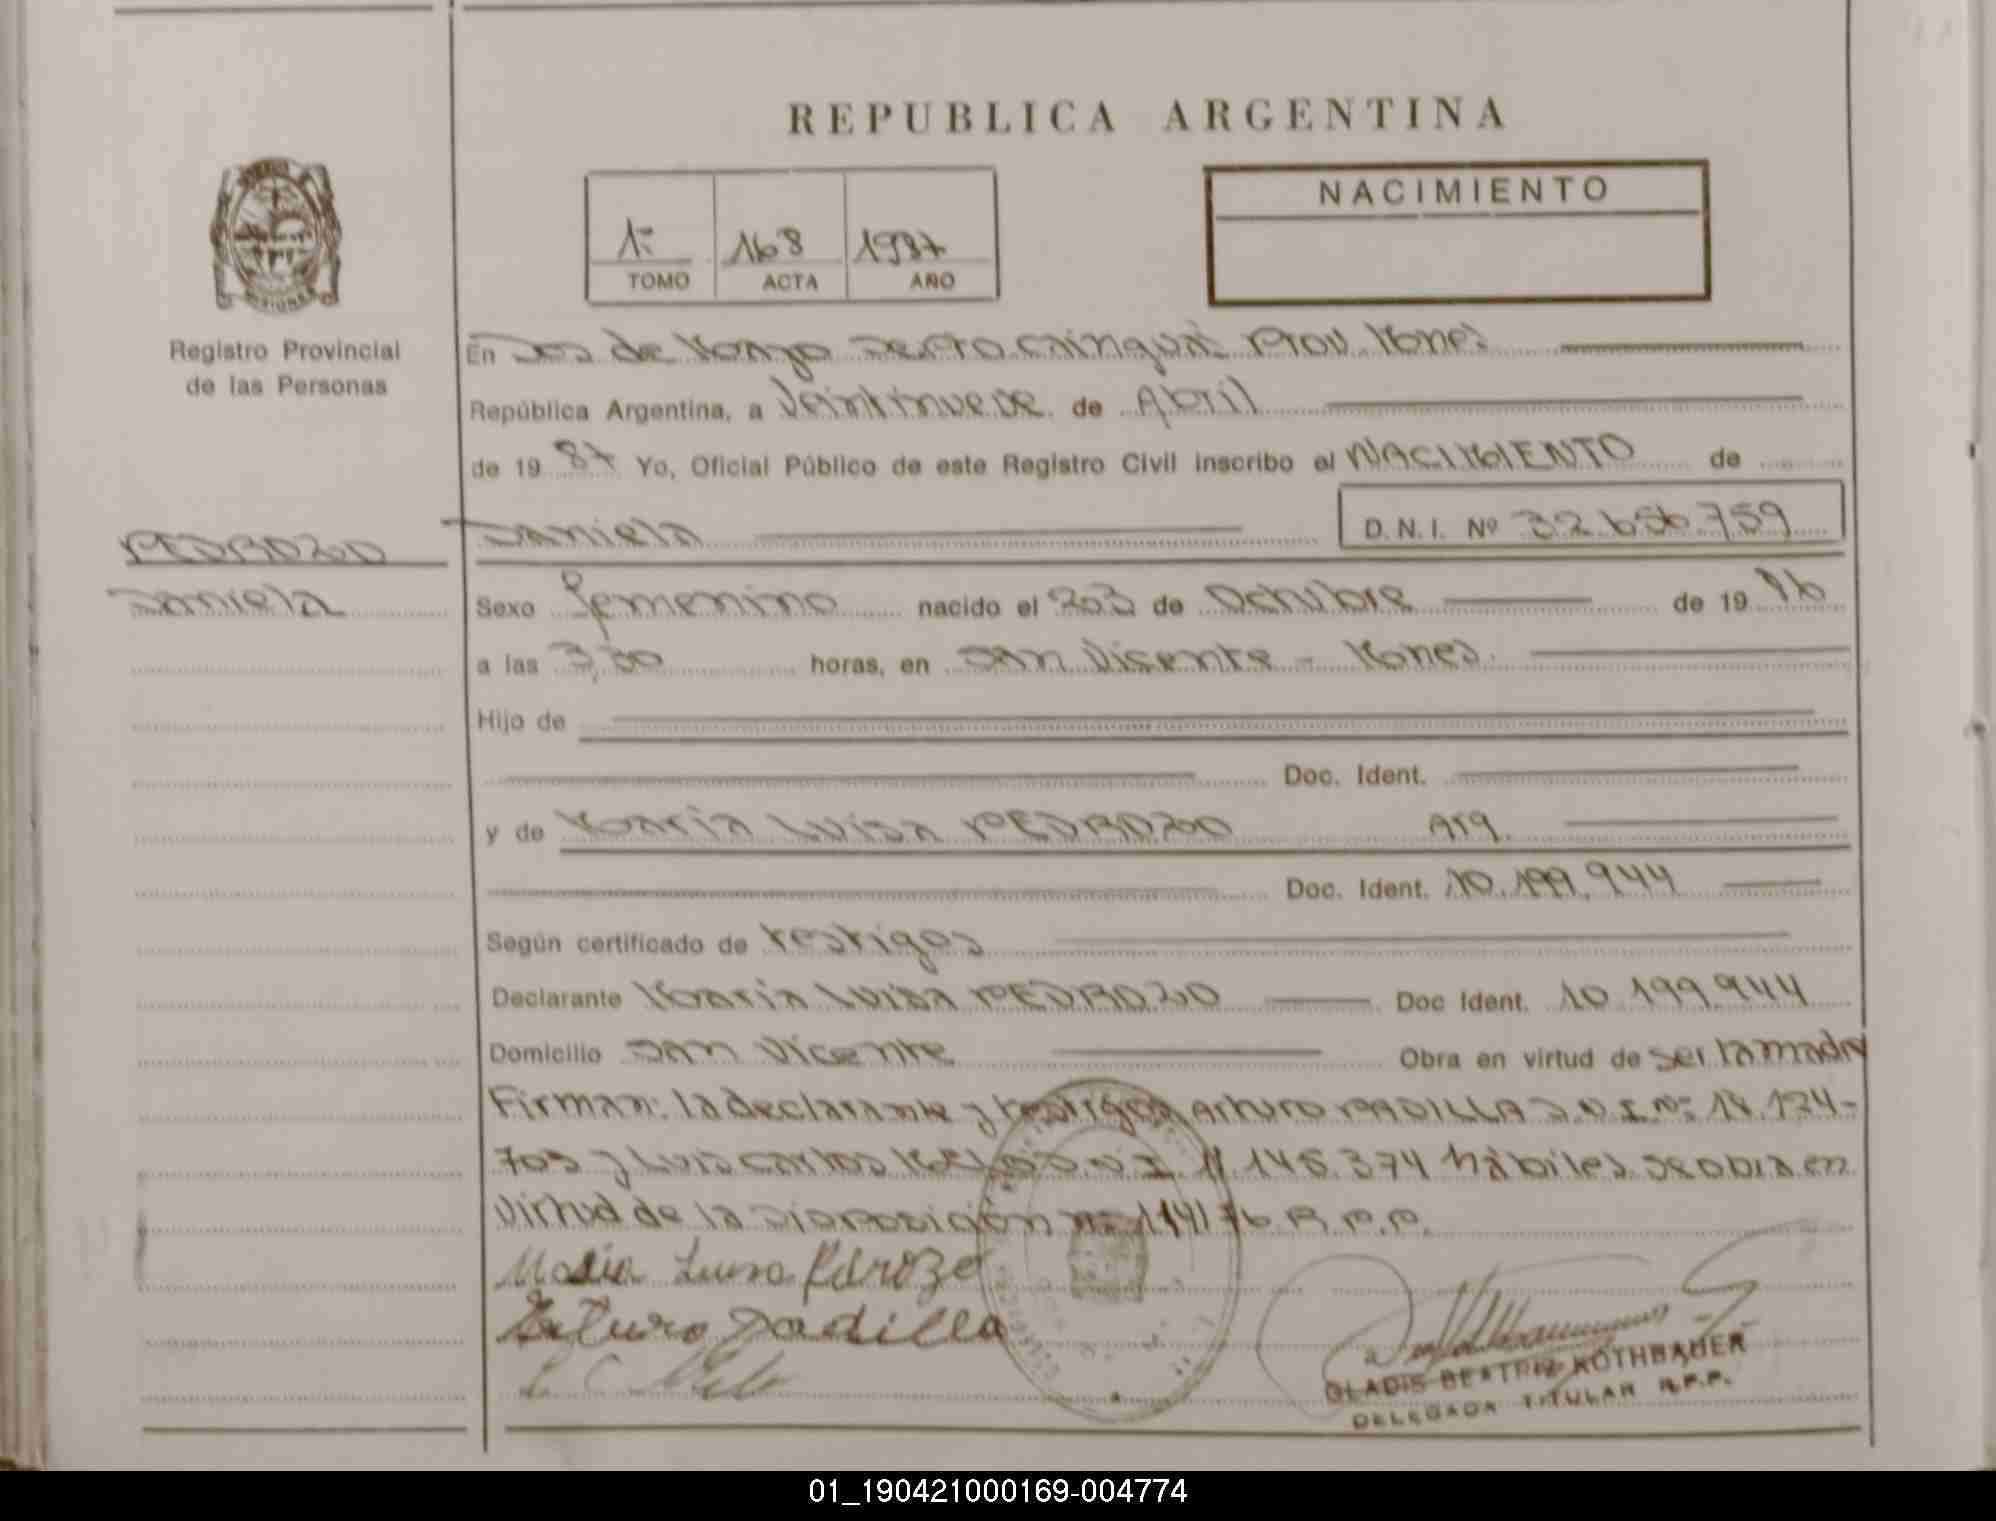 REPUBLICA ARGENTINA
NACIMIENTO
1º 168 1987
TOMO ACTA AÑO
Registro Provincial
de las Personas
En Dos de Mayo Depto. Cainguás Prov. Mnes
República Argentina, a Veintinueve de Abril
de 19 87 Yo, Oficial Público de este Registro Civil inscribo el NACIMIENTO de
PEDROZO
Daniela
Daniela D.N.I. Nº 32.656.759
Sexo femenino nacido el de Octubre de 19 86
a las 3,00 horas, en San Vicente - Mnes.
Hijo de
Doc. Ident.
y de María Luisa PEDROZO Arg.
Doc. Ident. 10.199.944
Según certificado de testigos
Declarante María Luisa PEDROZO Doc Ident. 10.199.944
Domicilio San Vicente Obra en virtud de ser la madre
Firman: la declarante y testigos Arturo PADILLA D.N.I. Nº 18.174-
703 y Luis Carlos D.N.I. 11.145.374 hábiles se obra en
virtud de la Disposición nº 114/76 R.P.P.
Maria Luisa Pedrozo
Arturo Padilla
L C Melo
GLADIS BEATRIZ ROTHBAUER
DELEGADA TITULAR R.P.P.
01_190421000169-004774